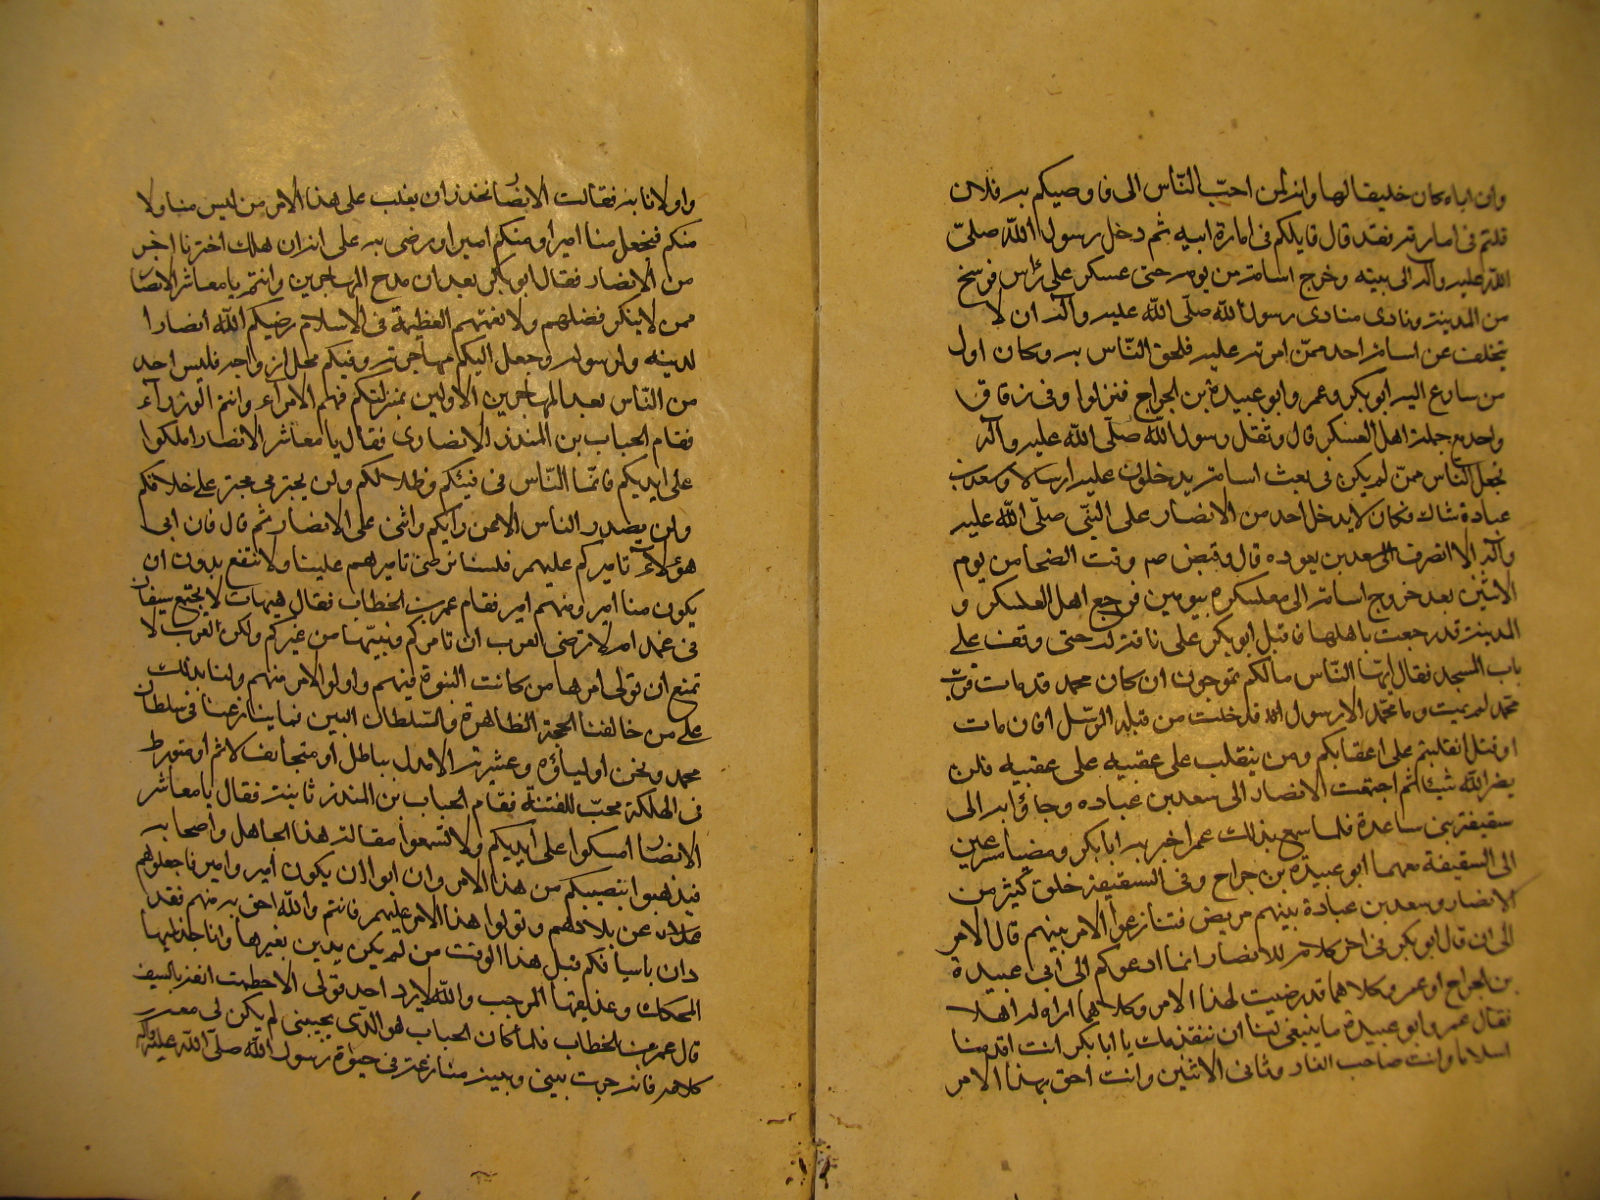 وان اباه كان خليقا لها وانه لمن احبّ النّاس الى فاوصيكم به فلان
قلتم فى امارته فقد قال قايلكم فى امارة ابيه ثم دخل رسول اللّه صلىّ
اللّه عليه وآله الى بيته وخرج اسامة من يومه حتى عسكر على رأس فرسخ
من المدينة ونادى منادى رسول اللّه صلّى اللّه عليه وآله ان لا
يتخلف عن اسامة احد ممّن امرته عليه فلحق النّاس به وكان اول
من سارع اليه ابو بكر وعمر وابو عبيدة بن الجراح فنزلوا فى زقاق
واحد مع جملة اهل العسكر قال وثقل رسول اللّه صلّى اللّه عليه وآله
فجعل النّاس ممّن لم يكن فى بعث اسامة يدخلون عليه ارسالا وسعد بن
عبادة شاك فكان لا يدخل احد من الانصار على النّبى صلّى اللّه عليه
وآله الا انصرف الى سعد بن يعوده قال وقبض صم وقت الضحا من يوم
الاثنين بعد خروج اسامة الى معسكره بيومين فرجع اهل العسكر و
المدينة قد رجعت باهلها فاقبل ابو بكر على ناقة له حتى وقف على
باب المسجد فقال ايّها النّاس مالكم تموجون ان كان محمد قد مات فربّ
محمّد لم يمت وما محمّد الا رسول قد خلت من قبله الرّسل افان مات
او قتل انقلبتم على اعقابكم ومن ينقلب على عقبيه على عقبيه فلن
يضر اللّه شيئا ثم اجتمعت الانصار الى سعد بن عباده وجاؤا به الى
سقيفة بنى ساعدة فلما سمع بذلك عمر اخبر به ابا بكر ومضيا مسرعين
الى السقيفة معهما ابو عبيدة بن جراح وفى السقيفة خلق كثير من
الانصار وسعد بن عبادة بينهم مريض فتنازعوا الامر بينهم قال الامر
الى ان قال ابو بكر فى اخر كلامه للانصار انما ادعوكم الى ابى عبيدة
بن الجراح او عمر وكلاهما قد رضيت لهذا الامر وكلاهما اراه له اهلا
فقال عمر وابو عبيدة ما ينبغى لنا ان نتقدمك يا ابا بكر انت اقدمنا
اسلاما وانت صاحب الغار وثانى الاثنين وانت احق بهذا الامر
واولانا به فقالت الانصا نحذر ان يغلب على هذا الامر من ليس منا ولا
منكم فنجعل منا اميرا ومنكم امير او نرضى به على انه ان هلك اخترنا اخر
من الانصار فقال ابو بكر بعد ان مدح المهاجرين وانتم يا معاشر الانصا
ممن لا ينكر فضلهم ولا نعمتهم العظيمة فى الاسلام رضيكم اللّه انصارا
لدينه ولرسوله وجعل اليكم مهاجرته وفيكم محل ازواجه فليس احد
من النّاس بعد المهاجرين الاولين بمنزلتكم فهم الامرآء وانتم الوزرآء
فقام الحباب بن المنذر الانصارى فقال يا معاشر الانصار املكوا
على ايديكم فانّما النّاس فى فيئكم وظلالكم ولن يجترى مجتر على خلافكم
ولن يصدر الناس الا عن رأيكم واثنى على الانصار ثم قال فان ابى
هؤلآء تاميركم عليهم فلسنا نرضى تاميرهم علينا ولا نقنع بدون ان
يكون منا امير ومنهم امير فقام عمر بن الخطاب فقال هيهات لا يجتمع سيفان
فى غمد امر لا ترضى العرب ان تامركم ونبيّها من غيركم ولكن العرب لا
تمنع ان تولى امرها من كانت النبوة فيهم واولو الامر منهم ولنا بذلك
على من خالفنا الحجة الظاهرة والسّلطان البين فما ينازعنا فى سلطان
محمد ونحن اولياؤه وعشيرته الا مدل بباطل او متجانف لاثم او متورط
فى الهلكة محبّ للفتنة فقام الحباب بن المنذر ثانية فقال يا معاشر
الانصا امسكوا على ايديكم ولا تسمعوا مقالة هذا الجاهل واصحابه
فيذهبوا بنصيبكم من هذا الامر وان ابوا ان يكون أمير وامير فاجعلوهم
عن بلادهم وتولوا هذا الامر عليهم فانتم واللّه احق به منهم فقد
دان باسيافكم قبل هذا الوقت من لم يكن يدين بغيرها وانا جذيلها
المحكك وعذيقها المرجب واللّه لا يرد احد قولى الا حطمت انفه بالسيف
قال عمر بن الخطاب فلما كان الحباب هو الذّى يجيبنى لم يكن لى معه
كلام فانه جرت بينى وبينه منازعة فى حيوة رسول اللّه صلّى اللّه عليه وآله